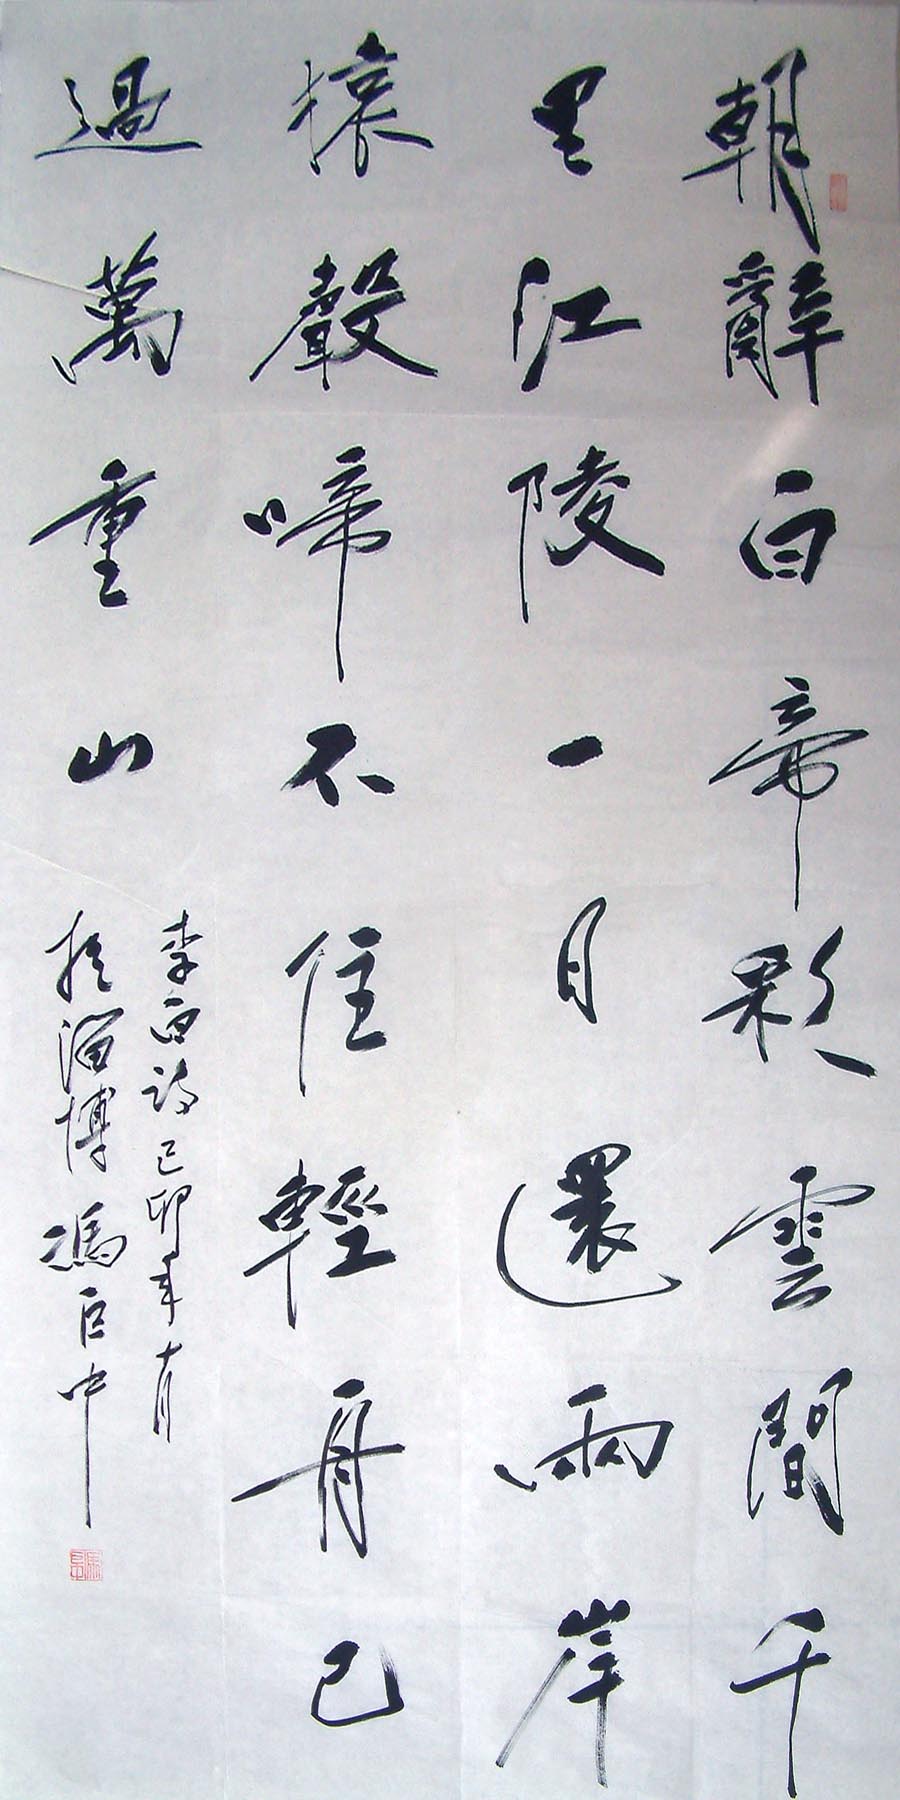 朝辭白帝彩雲間千
里江陵一日還兩岸
猿聲啼不住輕舟已
過萬重山
李白詩己卯年月
於淄博馮巨中